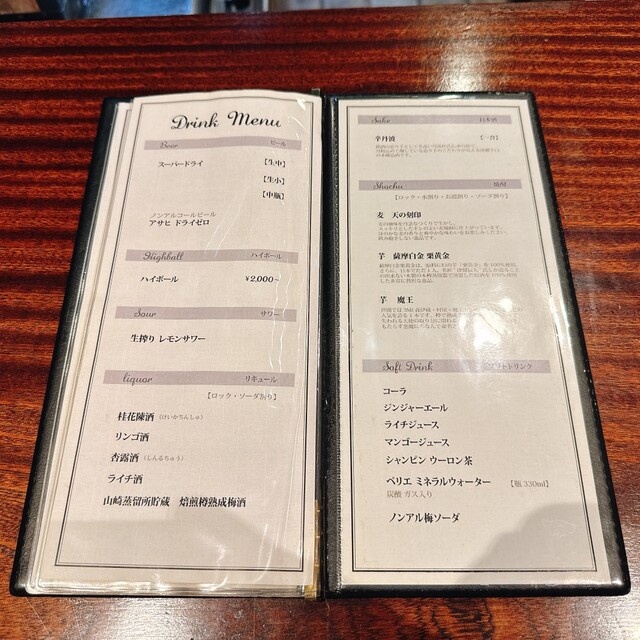 Drink Menu
Beer ビール
スーパードライ 【生中】
【生小】
【中瓶】
ノンアルコールビール
アサヒ ドライゼロ
Highball ハイボール
ハイボール ¥2,000~
Sour サワー
生搾り レモンサワー
liquor リキュール
【ロック・ソーダ割り】
桂花陳酒（けいかちんしゅ）
リンゴ酒
杏露酒（しんるちゅう）
ライチ酒
山崎蒸留所貯蔵 焙煎樽熟成梅酒
Sake 日本酒
辛丹波 【一合】
Shochu 焼酎
【ロック・水割り・お湯割り・ソーダ割り】
麦 天の刻印
芋 薩摩白金 栗黄金
芋 魔王
Soft Drink ソフトドリンク
コーラ
ジンジャーエール
ライチジュース
マンゴージュース
シャンピン ウーロン茶
ペリエ ミネラルウォーター 【瓶 330ml】
炭酸 ガス入り
ノンアル梅ソーダ